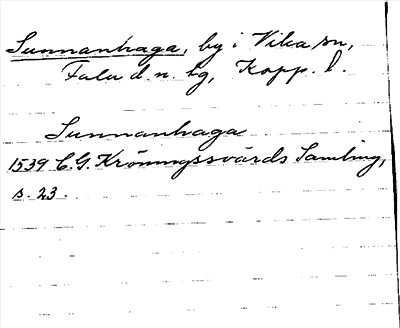 Sunnanhaga, by i Vika sn,
Falu d. n. tg, Kopp. l.
Sunnanhaga
1539 C. G. Kröningssvärds Samling,
s. 23.